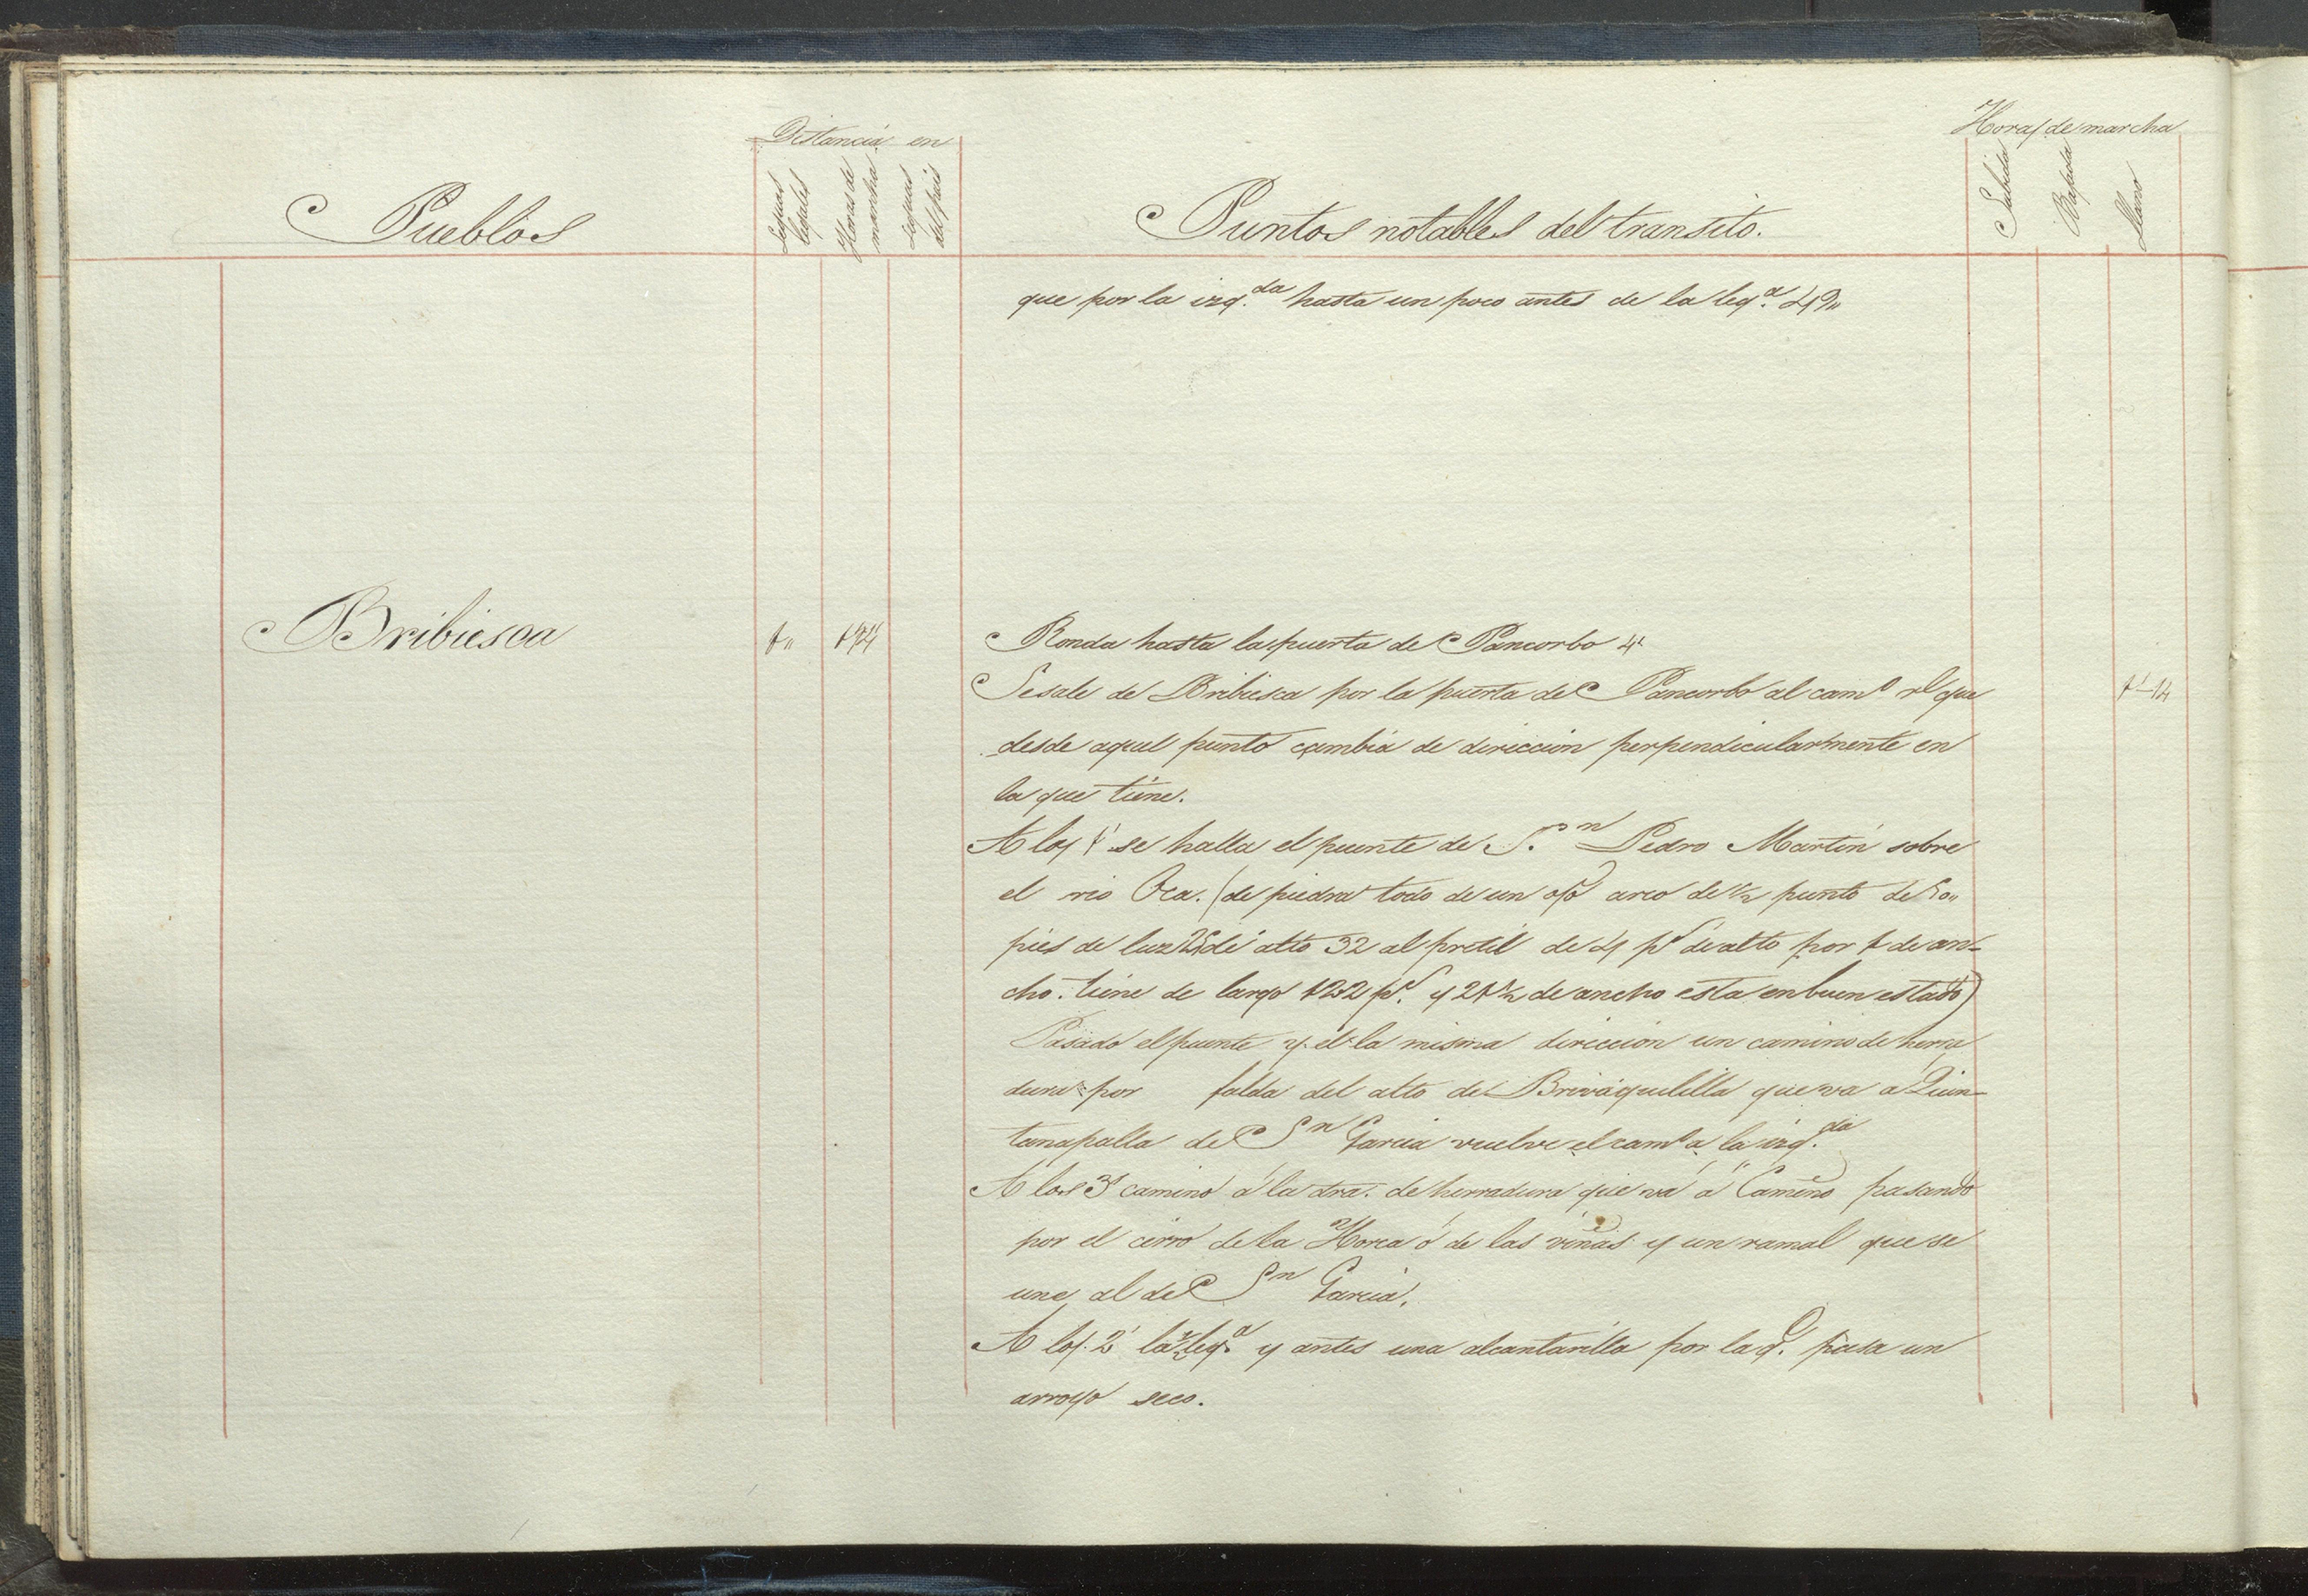 Distancia en
Horas de marcha
Pueblos
Leguas legales
Horas de marcha
Leguas del pais
Puntos notables del transito.
Subida
Bajada
Llano
que por la izq.da hasta un poco antes de la leg.a 49"
Bribiesca
1"
Ronda hasta la puerta de Pancorbo 4'
Se sale de Bribiesca por la puerta de Pancorbo al cam.o rl que
1'-14
desde aquel punto cambia de direccion perpendicularmente en
la que tiene.
A los 1' se halla el puente de S.n Pedro Martin sobre
el rio Oca. (de piedra todo de un arco de 1/2 punto de
pies de luz de alto 32 al pretil de 4 p.s de alto por 1 de an-
cho. tiene de largo 122 p.s y 21 1/2 de ancho esta en buen estado)
Pasado el puente y la misma direccion un camino de herra
dura por falda del alto de Brivaquililla que va a Quin-
tanapalla de S.n Garcia vuelve el cam.o a la izq.da
A los 3' camino á la dra. de herradura que va á Cameno pasando
por el cerro de la Horca ó de las viñas y un ramal que se
une al de S.n Garcia.
A los 2' la 1/2 leg.a y antes una alcantarilla por la q. pasa un
arroyo seco.